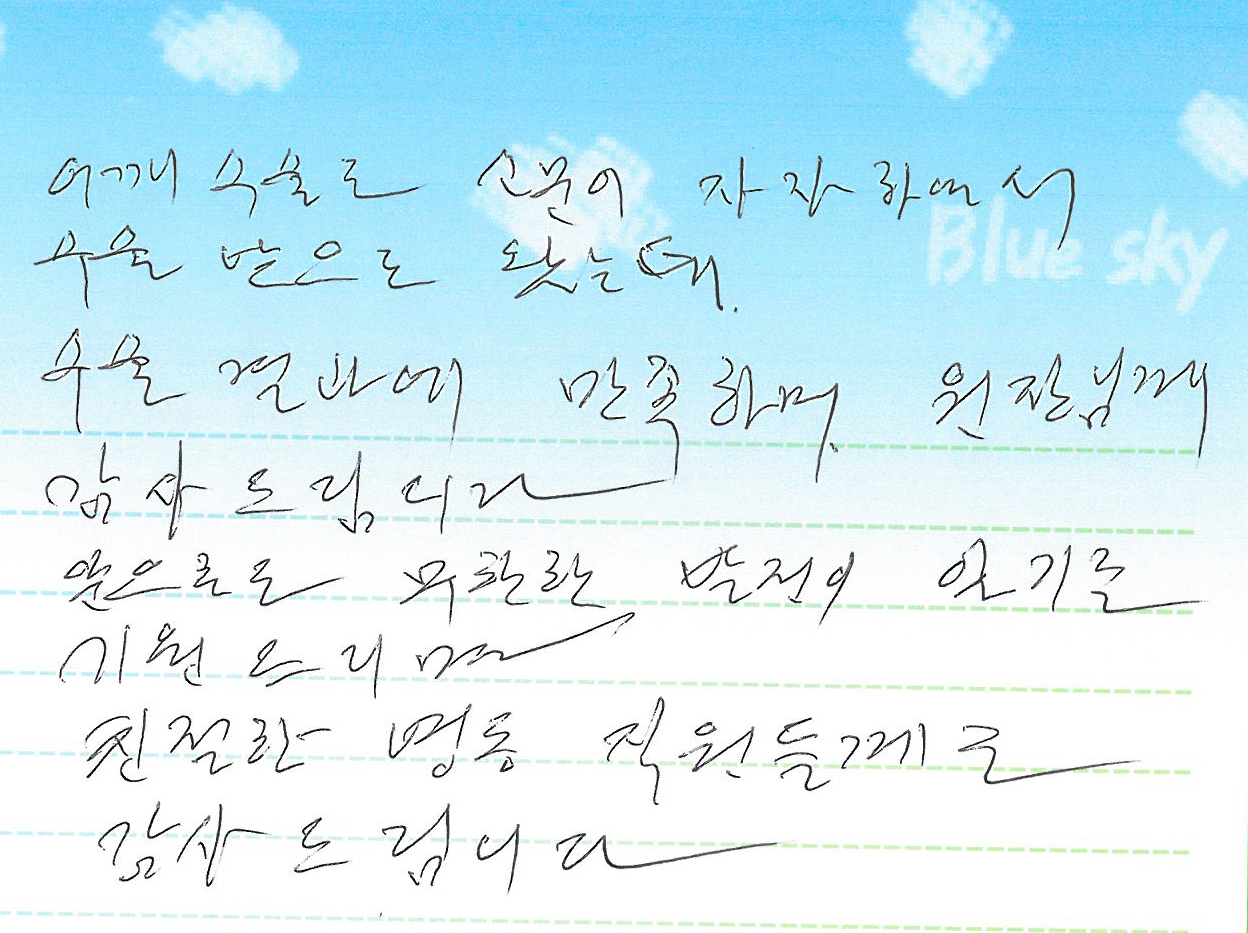 어깨 수술로 소문이 자자하여서
Blue sky
수술 받으로 왔는데.
수술 결과에 만족하며. 원장님께
감사 드립니다
앞으로도 무한한 발전이 있기를
기원 드리며
친절한 명동 직원들께도
감사 드립니다